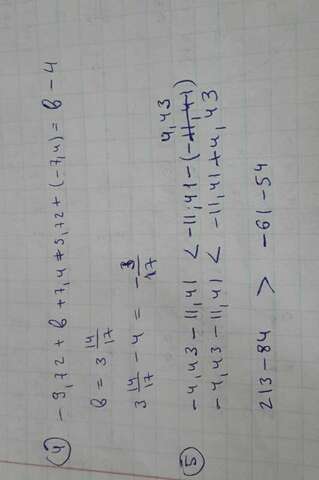 ④ -9,72 + в + 7,4 + 5,72 + (-7,4) = в - 4
в = 3 14/17
3 14/17 - 4 = - 3/17
4,43
⑤ -4,43 - 11,41 < -11,41 - (-11,41)
-4,43 - 11,41 < -11,41 + 4,43
213 - 84 > -61 - 54